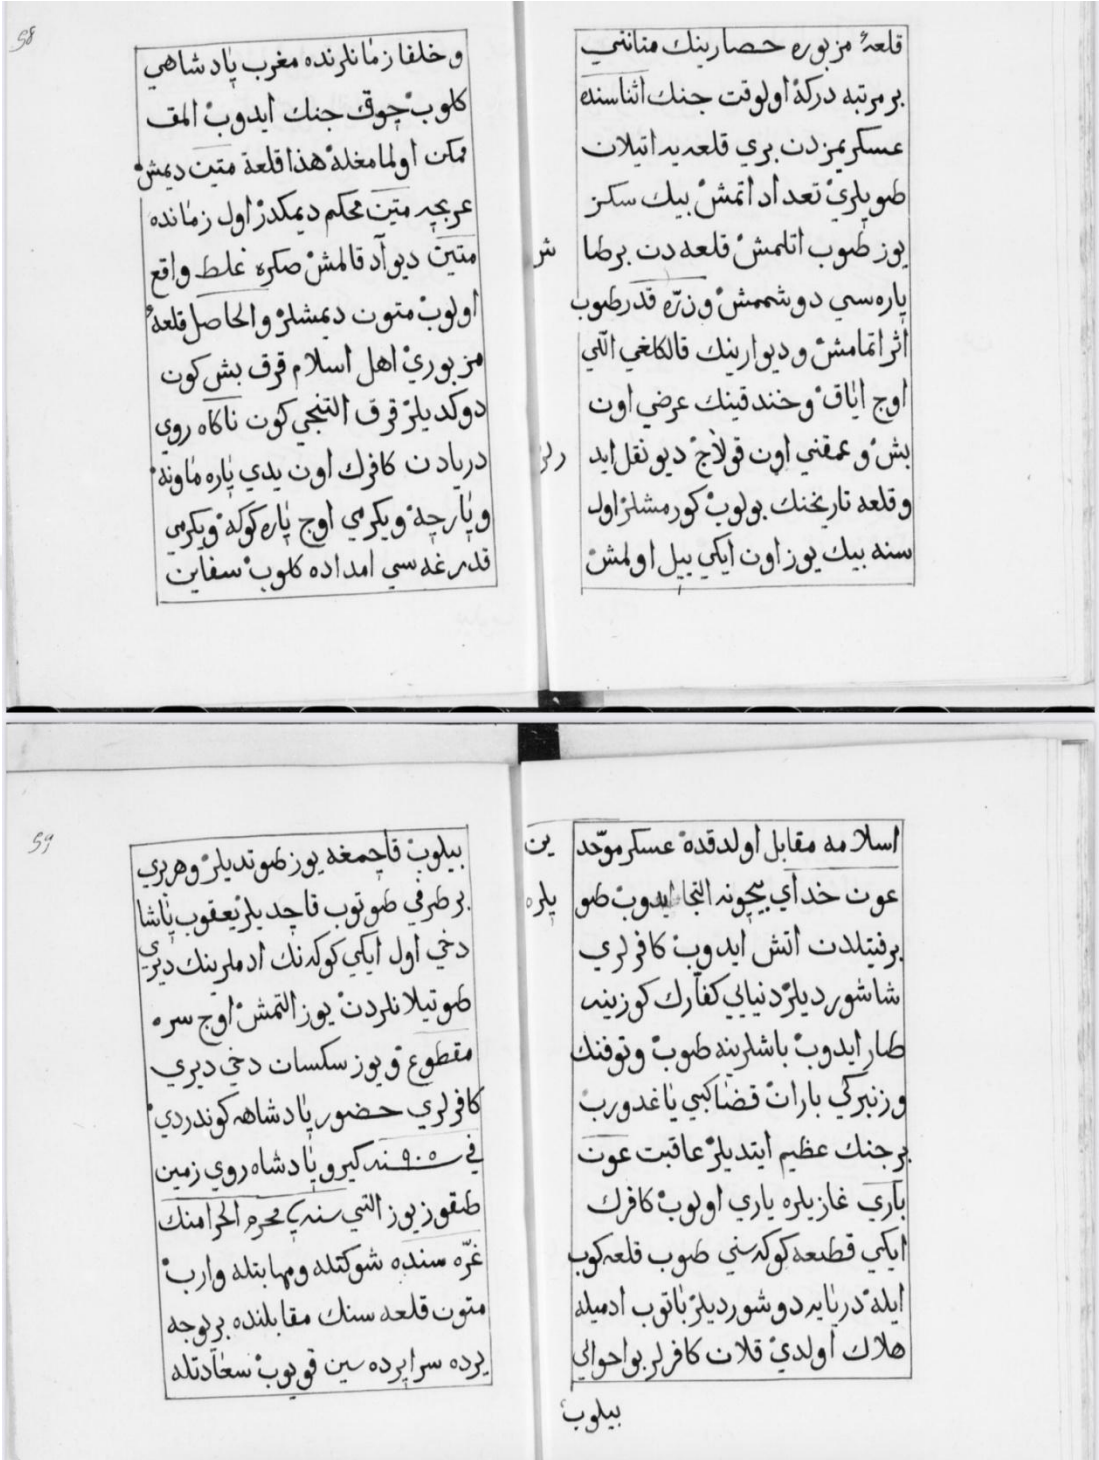 قلعهٔ مزبوره حصارينك متانتي
بر مرتبه دركهْ اولوقت جنك اثناسنده
عسكريمزدن بري قلعه‌يه اتيلان
طوپلريْ تعداد اتمشْ بيك سكز
يوز طوب اتلمشْ قلعه دن بر طا
ش
پاره سي دوشممشْ وزرّه قدر طوب
اثر اتمامشْ وديوارينك قالكلغي اللي
اوچ اياقْ وخندقينك عرضي اون
بشْ وعمقني اون قولاجْ ديو نقل ايد
رلر
وقلعه تاريخنك بولوبْ كورمشلرْ اول
سنه بيك يوز اون ايكي ييل اولمشْ
58
وخلفا زمانلرنده مغرب پادشاهي
كلوبْ چوق جنك ايدوبْ المق
ممكن اولمامغله هذا قلعة متين ديمشْ
عربجه متين محكم ديمكدرْ اول زمانده
متين ديو آد قالمشْ صكره غلط واقع
اولوبْ متون ديمشلرْ والحاصل قلعهٔ
مزبوريْ اهل اسلام قرق بش كون
دوكديلرْ قرق التنجي كون ناكاه روي
دريادن كافرك اون يدي پاره ماونهْ
وپارچهْ ويكرمي اوچ پاره كوكهْ ويكرمي
قدرغه سي امداده كلوبْ سفاين
اسلامه مقابل اولدقدهْ عسكر موحّد
ين
عون خداي بيچونه التجا ايدوبْ طو
پلره
برفتيلدن اتش ايدوبْ كافرلري
شاشورديلرْ دنيايي كفارك كوزينه
طار ايدوبْ باشلرينه طوبْ وتوفنك
وزنبركي بارانْ قضا كبي ياغدوربْ
بر جنك عظيم ايتديلرْ عاقبت عون
باري غازيلره ياري اولوبْ كافرك
ايكي قطعه كوكه سني طوب قلعه كوب
ايلهْ دريايه دوشورديلرْ باتوب ادميله
هلاك اولديْ قلان كافرلر بو احوالي
بيلوبْ
59
بيلوبْ قاچمغه يوز طوتديلرْ وهر بري
بر طرفي طوتوب قاچديلرْ يعقوب پاشا
دخي اول ايكي كوكه نك ادملرينك ديري
طوتيلانلردنْ يوز التمشْ اوچ سره
مقطوع ويوز سكسان دخي ديري
كافرلري حضور پادشاهه كوندرديْ
في سنه ٩٠٥ كيرو پادشاه روي زمين
طقوز يوز التي سنه سي محرم الحرامنك
غرّه سنده شوكتله ومهابتله واربْ
متون قلعه سنك مقابلنده بر يوجه
يرده سراپرده سين قويوبْ سعادتله